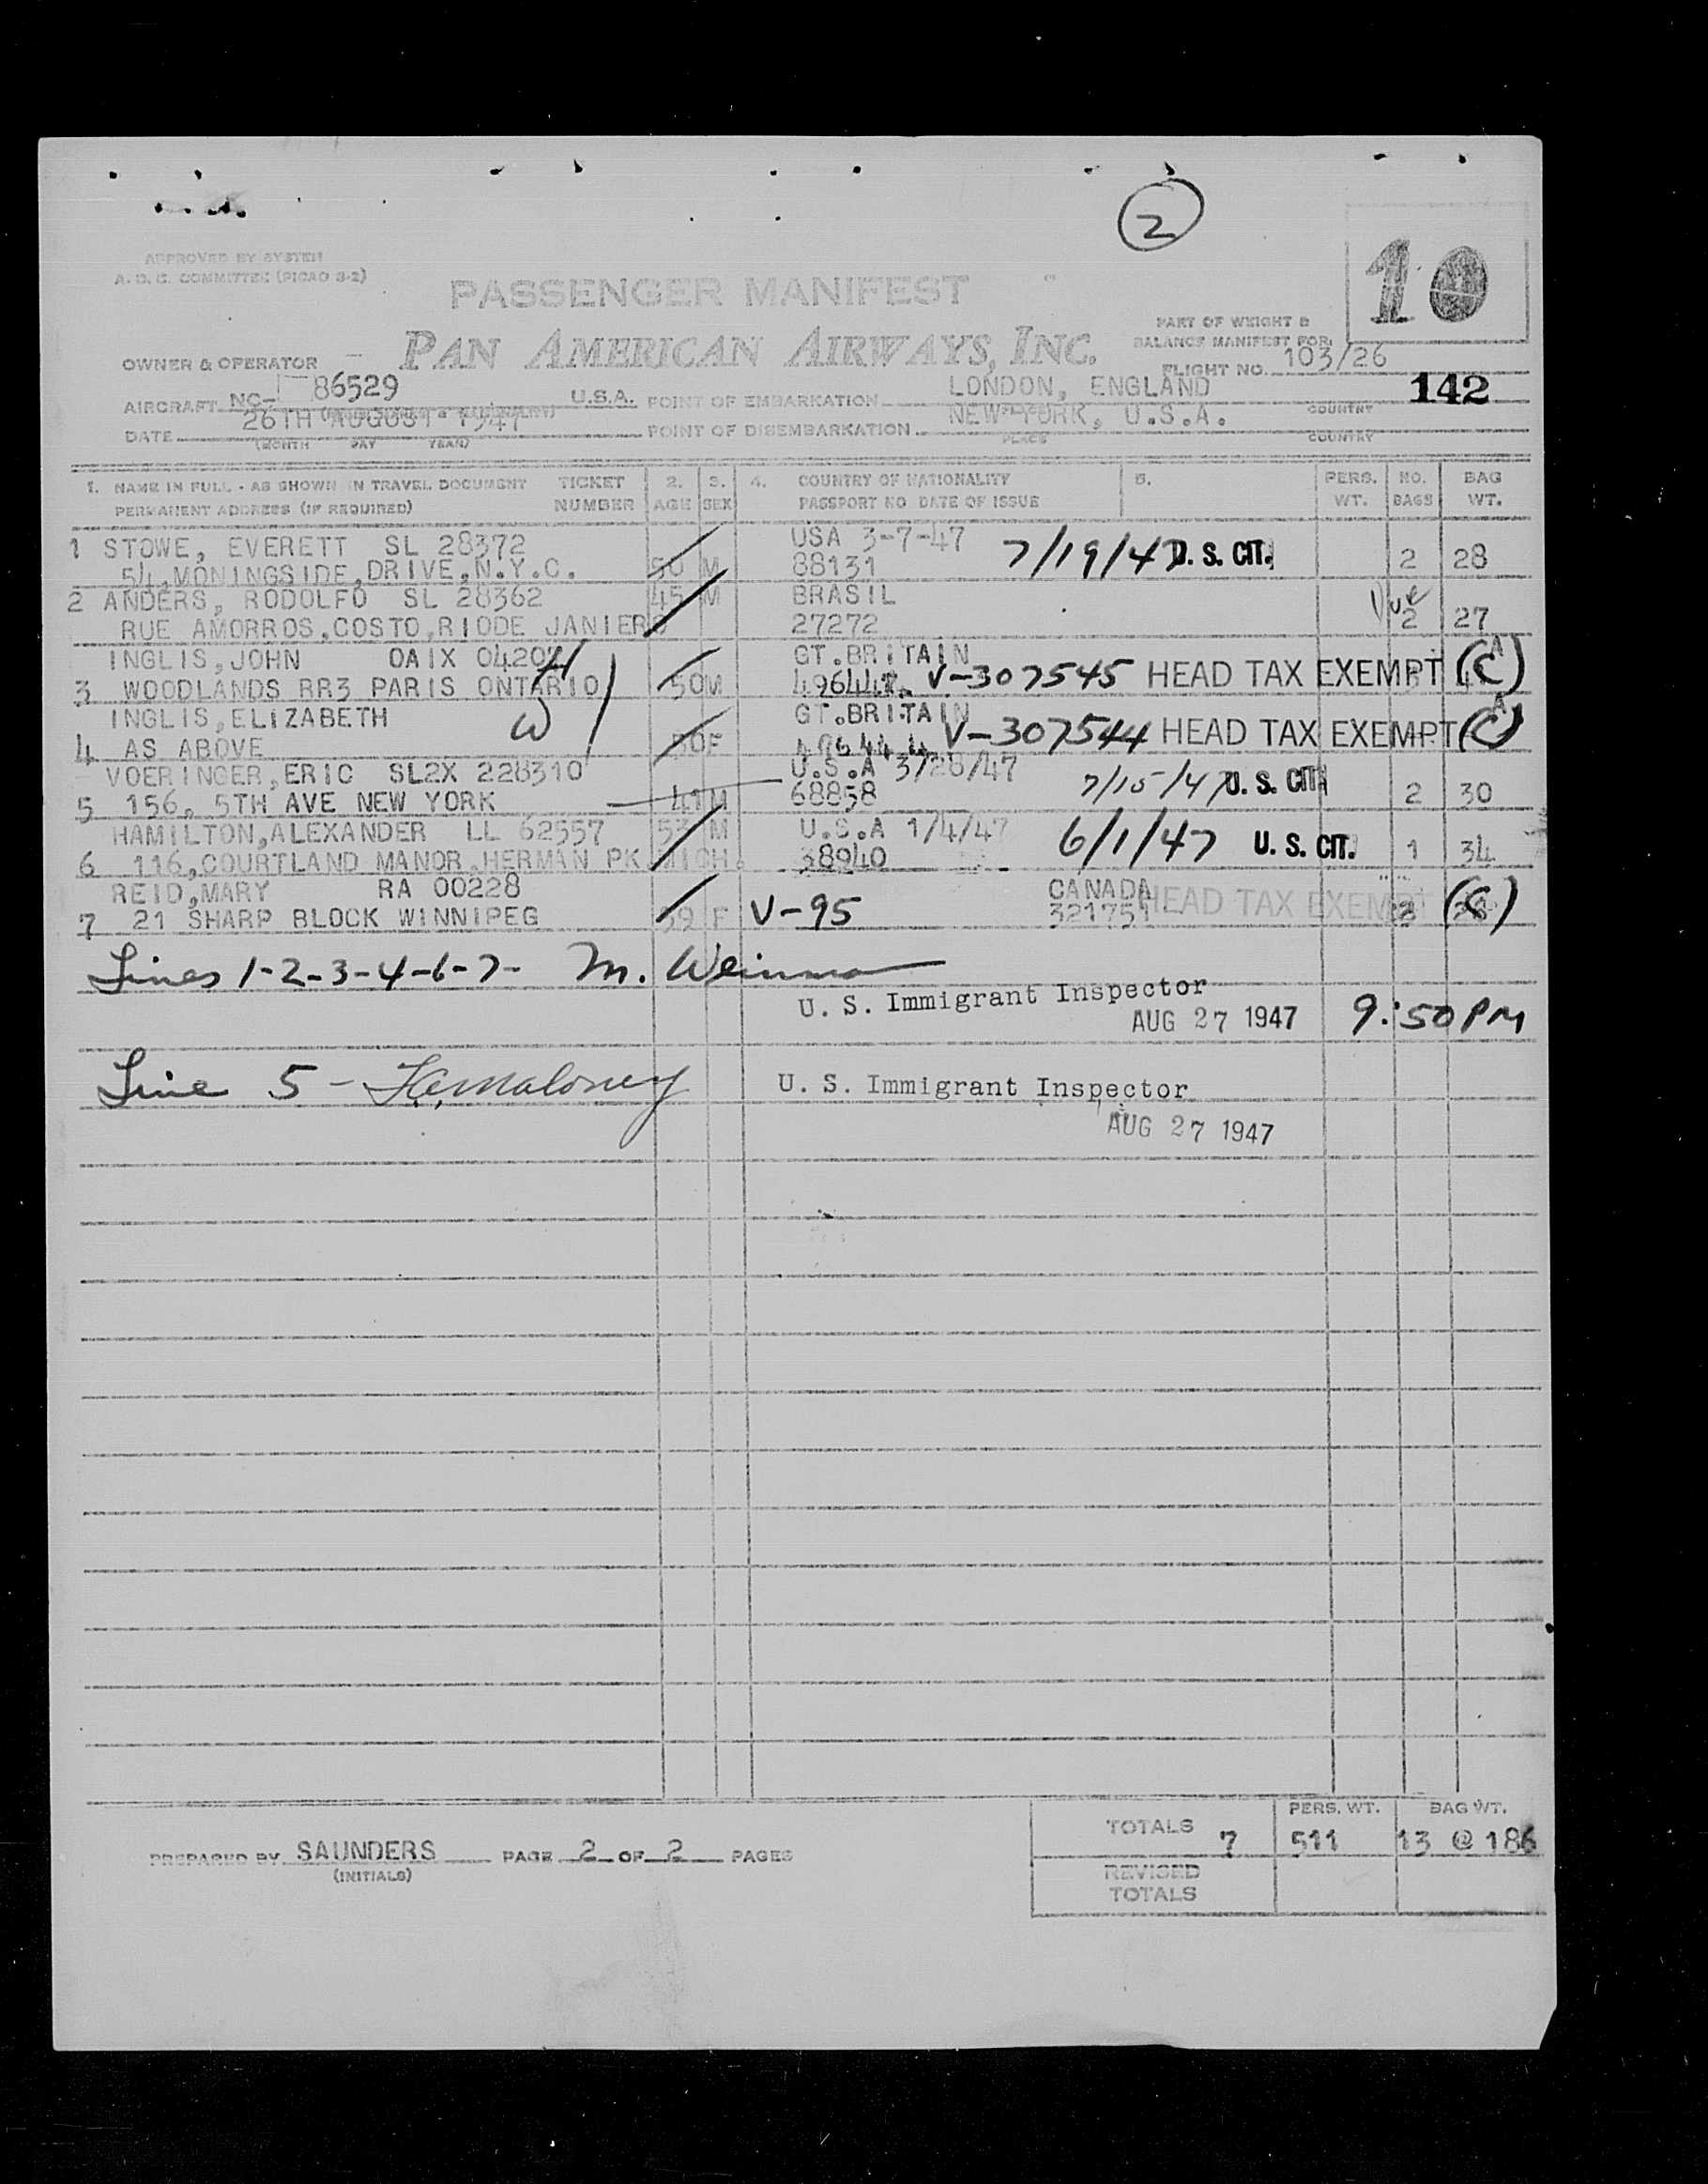 2
APPROVED BY SYSTEM
A. D. C. COMMITTEE (PICAO S-2)
10
PASSENGER MANIFEST
PART OF WEIGHT &
BALANCE MANIFEST FOR
PAN AMERICAN AIRWAYS, INC.
OWNER & OPERATOR
FLIGHT NO. 103/26
AIRCRAFT NC- 86529 U.S.A. POINT OF EMBARKATION LONDON, ENGLAND 142
COUNTRY
DATE 26TH AUGUST 1947 POINT OF DISEMBARKATION NEW YORK, U.S.A.
(MONTH DAY YEAR) PLACE COUNTRY
1. NAME IN FULL - AS SHOWN IN TRAVEL DOCUMENT TICKET 2. 3. 4. COUNTRY OF NATIONALITY 5. PERS. NO. BAG
PERMANENT ADDRESS (IF REQUIRED) NUMBER AGE SEX PASSPORT NO DATE OF ISSUE WT. BAGS WT.
1 STOWE, EVERETT SL 28372 USA 3-7-47
54,MONINGSIDE,DRIVE,N.Y.C. 50 M 88131 7/19/47 U. S. CIT. 2 28
2 ANDERS, RODOLFO SL 28362 45 M BRASIL
RUE AMORROS,COSTO,RIODE JANIERO 27272 2 27
INGLIS,JOHN OAIX H GT.BRITAIN
3 WOODLANDS RR3 PARIS ONTARIO 50 M V-307545 HEAD TAX EXEMPT (C)
INGLIS,ELIZABETH W GT.BRITAIN
4 AS ABOVE 50 F V-307544 HEAD TAX EXEMPT (C)
VOERINGER,ERIC SL2X 228310 U.S.A 3/28/47
5 156, 5TH AVE NEW YORK 41 M 68858 7/15/47 U. S. CIT. 2 30
HAMILTON,ALEXANDER LL 62557 53 M U.S.A 1/4/47
6 116,COURTLAND MANOR,HERMAN PK MICH. 38940 6/1/47 U. S. CIT. 1 34
REID,MARY RA 00228 CANADA
7 21 SHARP BLOCK WINNIPEG 59 F V-95 321751 HEAD TAX EXEMPT (C)
Lines 1-2-3-4-6-7- M. Weinman
U. S. Immigrant Inspector
AUG 27 1947 9:50 PM
Line 5 - Maloney U. S. Immigrant Inspector
AUG 27 1947
PERS. WT. BAG WT.
TOTALS 7 511 13 @ 186
PREPARED BY SAUNDERS PAGE 2 OF 2 PAGES
(INITIALS)
REVISED
TOTALS